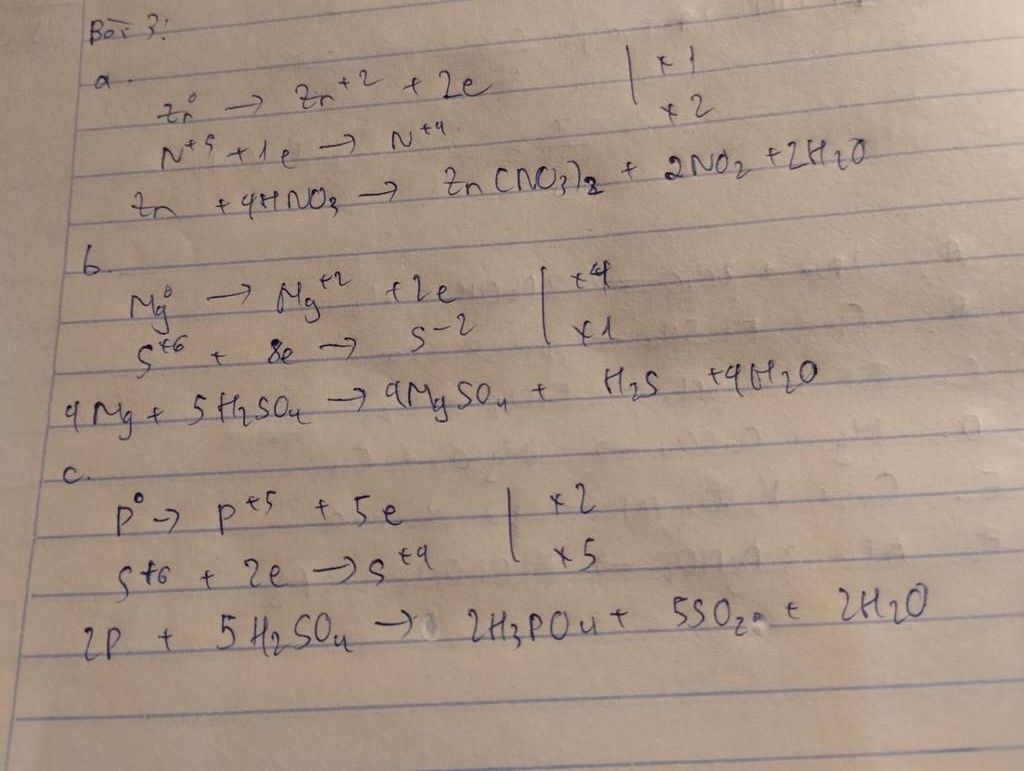 Bài 3:
a.
Zn⁰ → Zn⁺² + 2e | × 1
N⁺⁵ + 1e → N⁺⁴ | × 2
Zn + 4HNO₃ → Zn(NO₃)₂ + 2NO₂ + 2H₂O
b.
Mg⁰ → Mg⁺² + 2e | × 4
S⁺⁶ + 8e → S⁻² | × 1
4Mg + 5H₂SO₄ → 4MgSO₄ + H₂S + 4H₂O
c.
P⁰ → P⁺⁵ + 5e | × 2
S⁺⁶ + 2e → S⁺⁴ | × 5
2P + 5H₂SO₄ → 2H₃PO₄ + 5SO₂ + 2H₂O